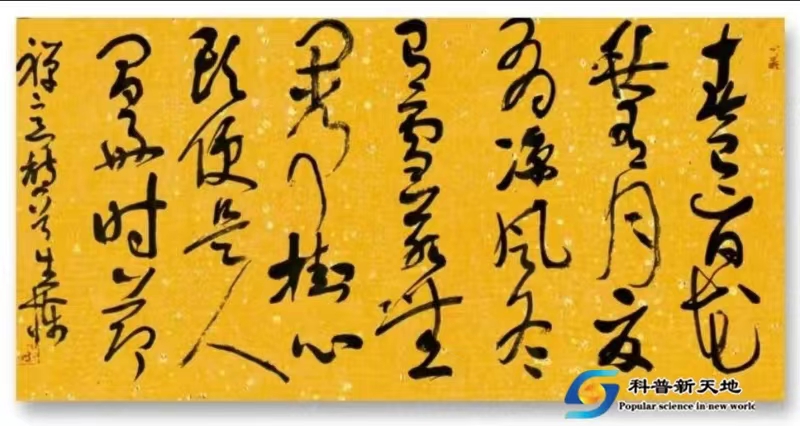 春有百花
秋有月夏
有凉风冬
有雪若無
閒事掛心
頭便是人
間好时节
禅
科普新天地
Popular science in new world